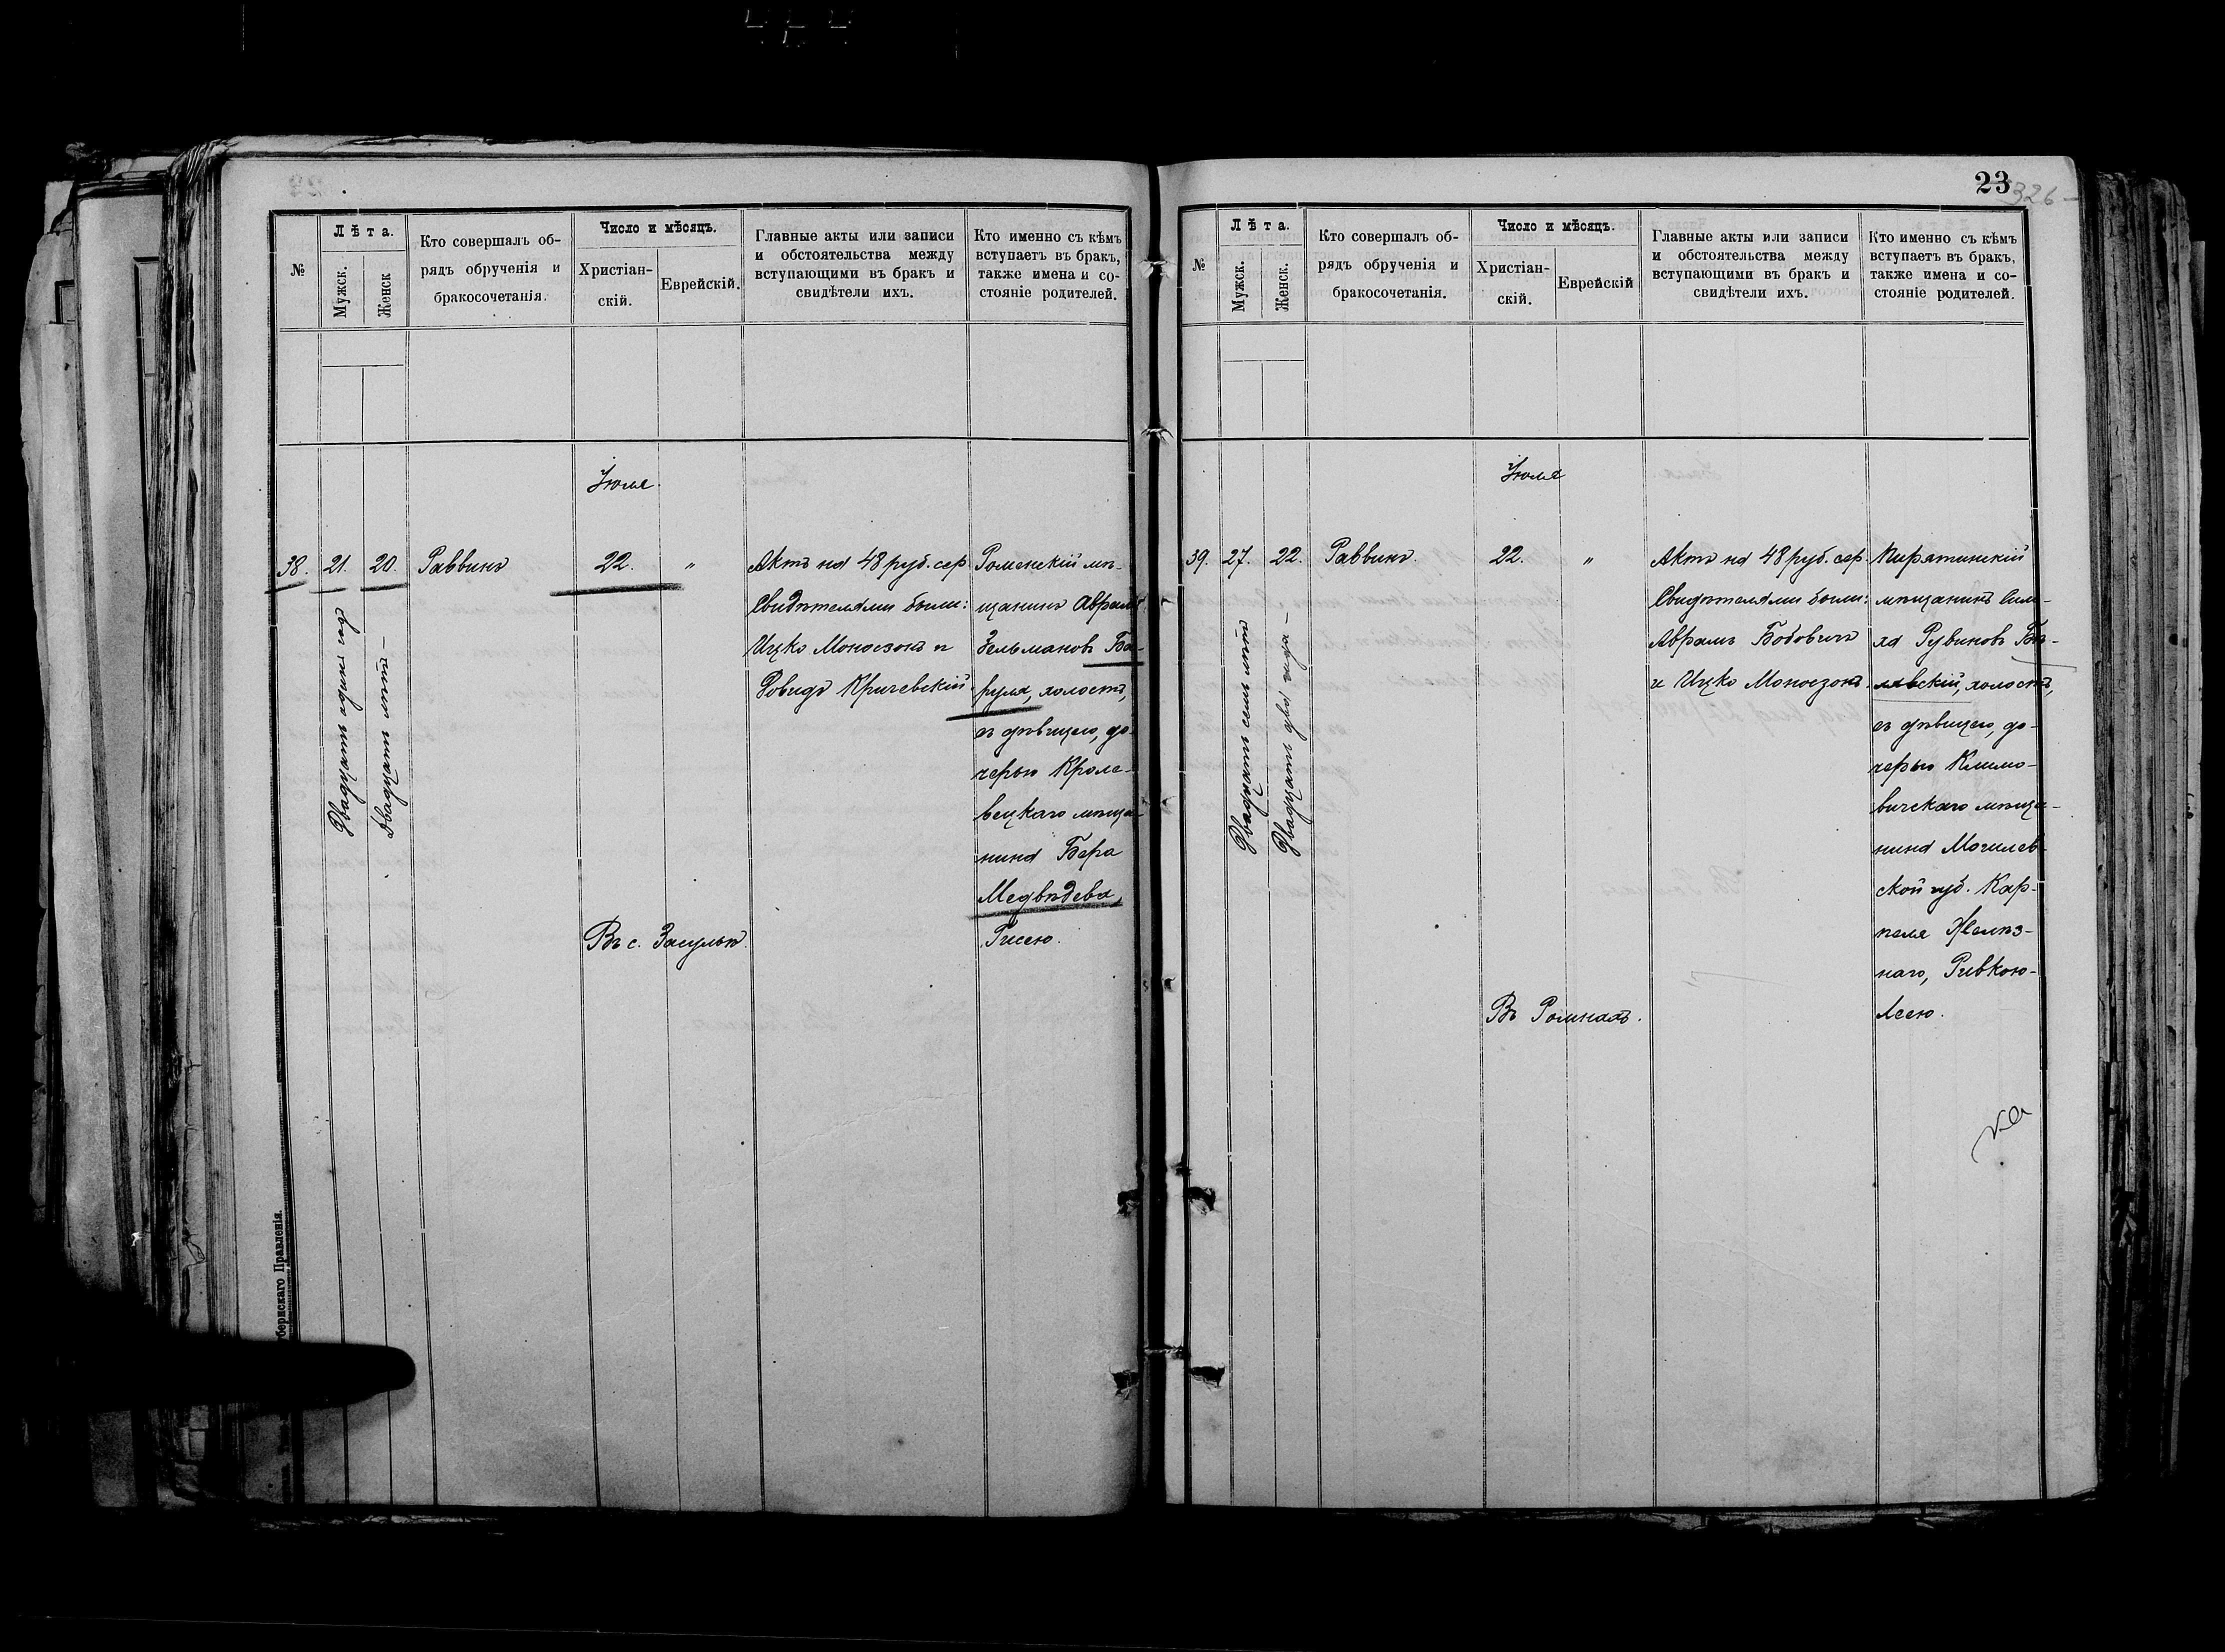 №
Лѣта.
Мужск.
Женск
Кто совершалъ об-
рядъ обрученія и
бракосочетанія.
Число и мѣсяцъ.
Христіан-
скій.
Еврейскій.
Главные акты или записи
и обстоятельства между
вступающими въ бракъ и
свидѣтели ихъ.
Кто именно съ кѣмъ
вступаетъ въ бракъ,
также имена и со-
стояніе родителей.
Іюля.
38.
21.
Двадцать одинъ годъ
20.
Двадцать лѣтъ –
Раввинъ
22.
"
Въ с. Засульѣ.
Актъ на 48 руб. сер.
Свидѣтелями были:
Ицко Моносзонъ и
Довидъ Кричевскій.
Роменскій мѣ-
щанинъ Аврамъ
Зельмановъ Ба-
руля, холостъ,
съ дѣвицею, до-
черью Кроле-
вецкаго мѣща-
нина Бера
Медвѣдева,
Рисею.
бернскаго Правленія.
23
326
№
Лѣта.
Мужск.
Женск.
Кто совершалъ об-
рядъ обрученія и
бракосочетанія.
Число и мѣсяцъ.
Христіан-
скій.
Еврейскій
Главные акты или записи
и обстоятельства между
вступающими въ бракъ и
свидѣтели ихъ.
Кто именно съ кѣмъ
вступаетъ въ бракъ,
также имена и со-
стояніе родителей.
Іюля
39.
27.
Двадцать семь лѣтъ
22.
Двадцать два года –
Раввинъ.
22.
"
Въ Ромнахъ.
Актъ на 48 руб. сер.
Свидѣтелями были:
Аврамъ Бобовичъ
и Ицко Моносзонъ.
Пирятинскій
мѣщанинъ Сим-
ха Рувиновъ Бѣ-
лявскій, холостъ,
съ дѣвицею, до-
черью Климо-
вичскаго мѣща-
нина Могилев-
ской губ. Кар-
пеля Желѣз-
наго, Ривкою-
Асею.